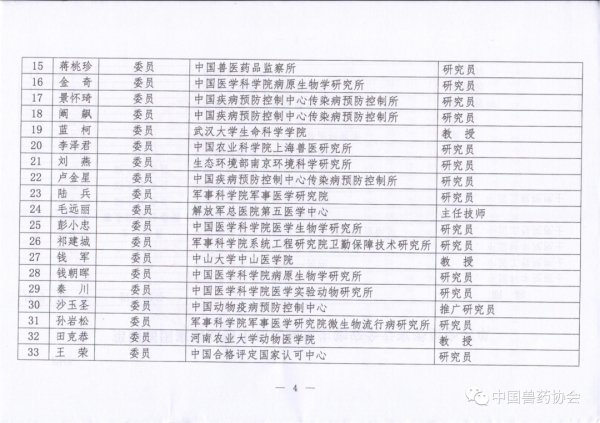 15 蒋桃珍 委员 中国兽医药品监察所 研究员
16 金 奇 委员 中国医学科学院病原生物学研究所 研究员
17 景怀琦 委员 中国疾病预防控制中心传染病预防控制所 研究员
18 阚 飙 委员 中国疾病预防控制中心传染病预防控制所 研究员
19 蓝 柯 委员 武汉大学生命科学学院 教 授
20 李泽君 委员 中国农业科学院上海兽医研究所 研究员
21 刘 燕 委员 生态环境部南京环境科学研究所 研究员
22 卢金星 委员 中国疾病预防控制中心传染病预防控制所 研究员
23 陆 兵 委员 军事科学院军事医学研究院 研究员
24 毛远丽 委员 解放军总医院第五医学中心 主任技师
25 彭小忠 委员 中国医学科学院医学生物学研究所 研究员
26 祁建城 委员 军事科学院系统工程研究院卫勤保障技术研究所 研究员
27 钱 军 委员 中山大学中山医学院 教 授
28 钱朝晖 委员 中国医学科学院病原生物学研究所 研究员
29 秦 川 委员 中国医学科学院医学实验动物研究所 研究员
30 沙玉圣 委员 中国动物疫病预防控制中心 推广研究员
31 孙岩松 委员 军事科学院军事医学研究院微生物流行病研究所 研究员
32 田克恭 委员 河南农业大学动物医学院 教 授
33 王 荣 委员 中国合格评定国家认可中心 研究员
— 4 —
中国兽药协会